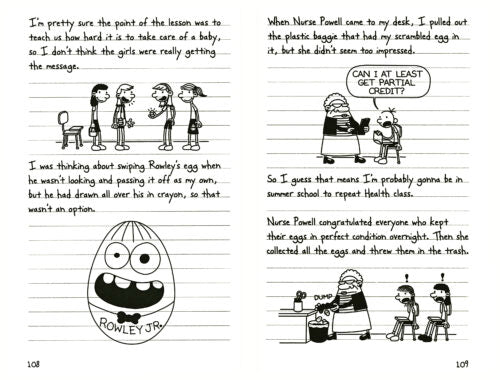 I'm pretty sure the point of the lesson was to
teach us how hard it is to take care of a baby,
so I don't think the girls were really getting
the message.
I was thinking about swiping Rowley's egg when
he wasn't looking and passing it off as my own,
but he had drawn all over his in crayon, so that
wasn't an option.
ROWLEY JR.
108
When Nurse Powell came to my desk, I pulled out
the plastic baggie that had my scrambled egg in
it, but she didn't seem too impressed.
CAN I AT LEAST
GET PARTIAL
CREDIT?
So I guess that means I'm probably gonna be in
summer school to repeat Health class.
Nurse Powell congratulated everyone who kept
their eggs in perfect condition overnight. Then she
collected all the eggs and threw them in the trash.
DUMP
!
!
109